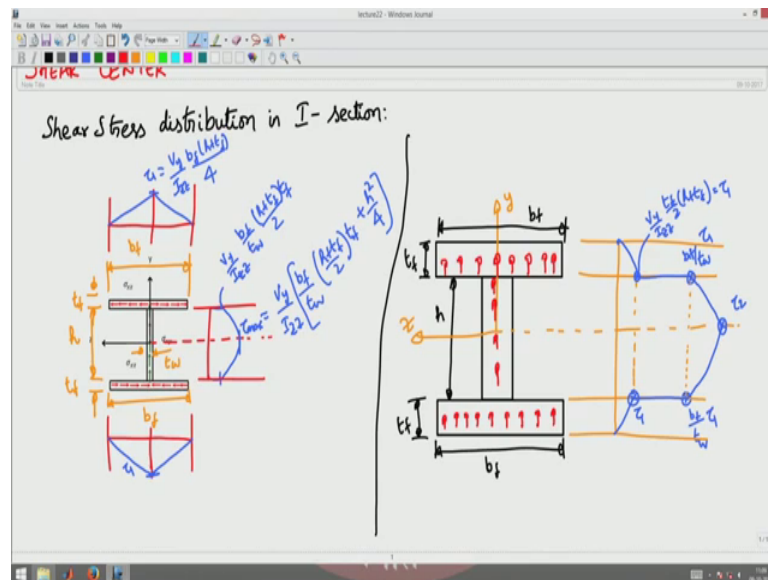 lecture22 - Windows Journal
File Edit View Insert Actions Tools Help
Page Width
B I
SHEAR CENTER
Note Title
09-10-2017
Shear Stress distribution in I-section:
τ₁ = V_y/I_zz b_f(h+t_f)/4
b_f
t_f
h
t_f
t_w
b_f
τ₁
V_y/I_zz b_f/t_w (h+t_f)t_f/2
τ_max = V_y/I_zz [b_f/t_w (h+t_f)/2 t_f + h²/4]
b_f
y
t_f
h
z
t_f
b_f
V_y/I_zz t_f/2 (h+t_f) = τ₁
τ₁
b_f/t_w
τ₂
τ₁
b_f/t_w τ₁
1